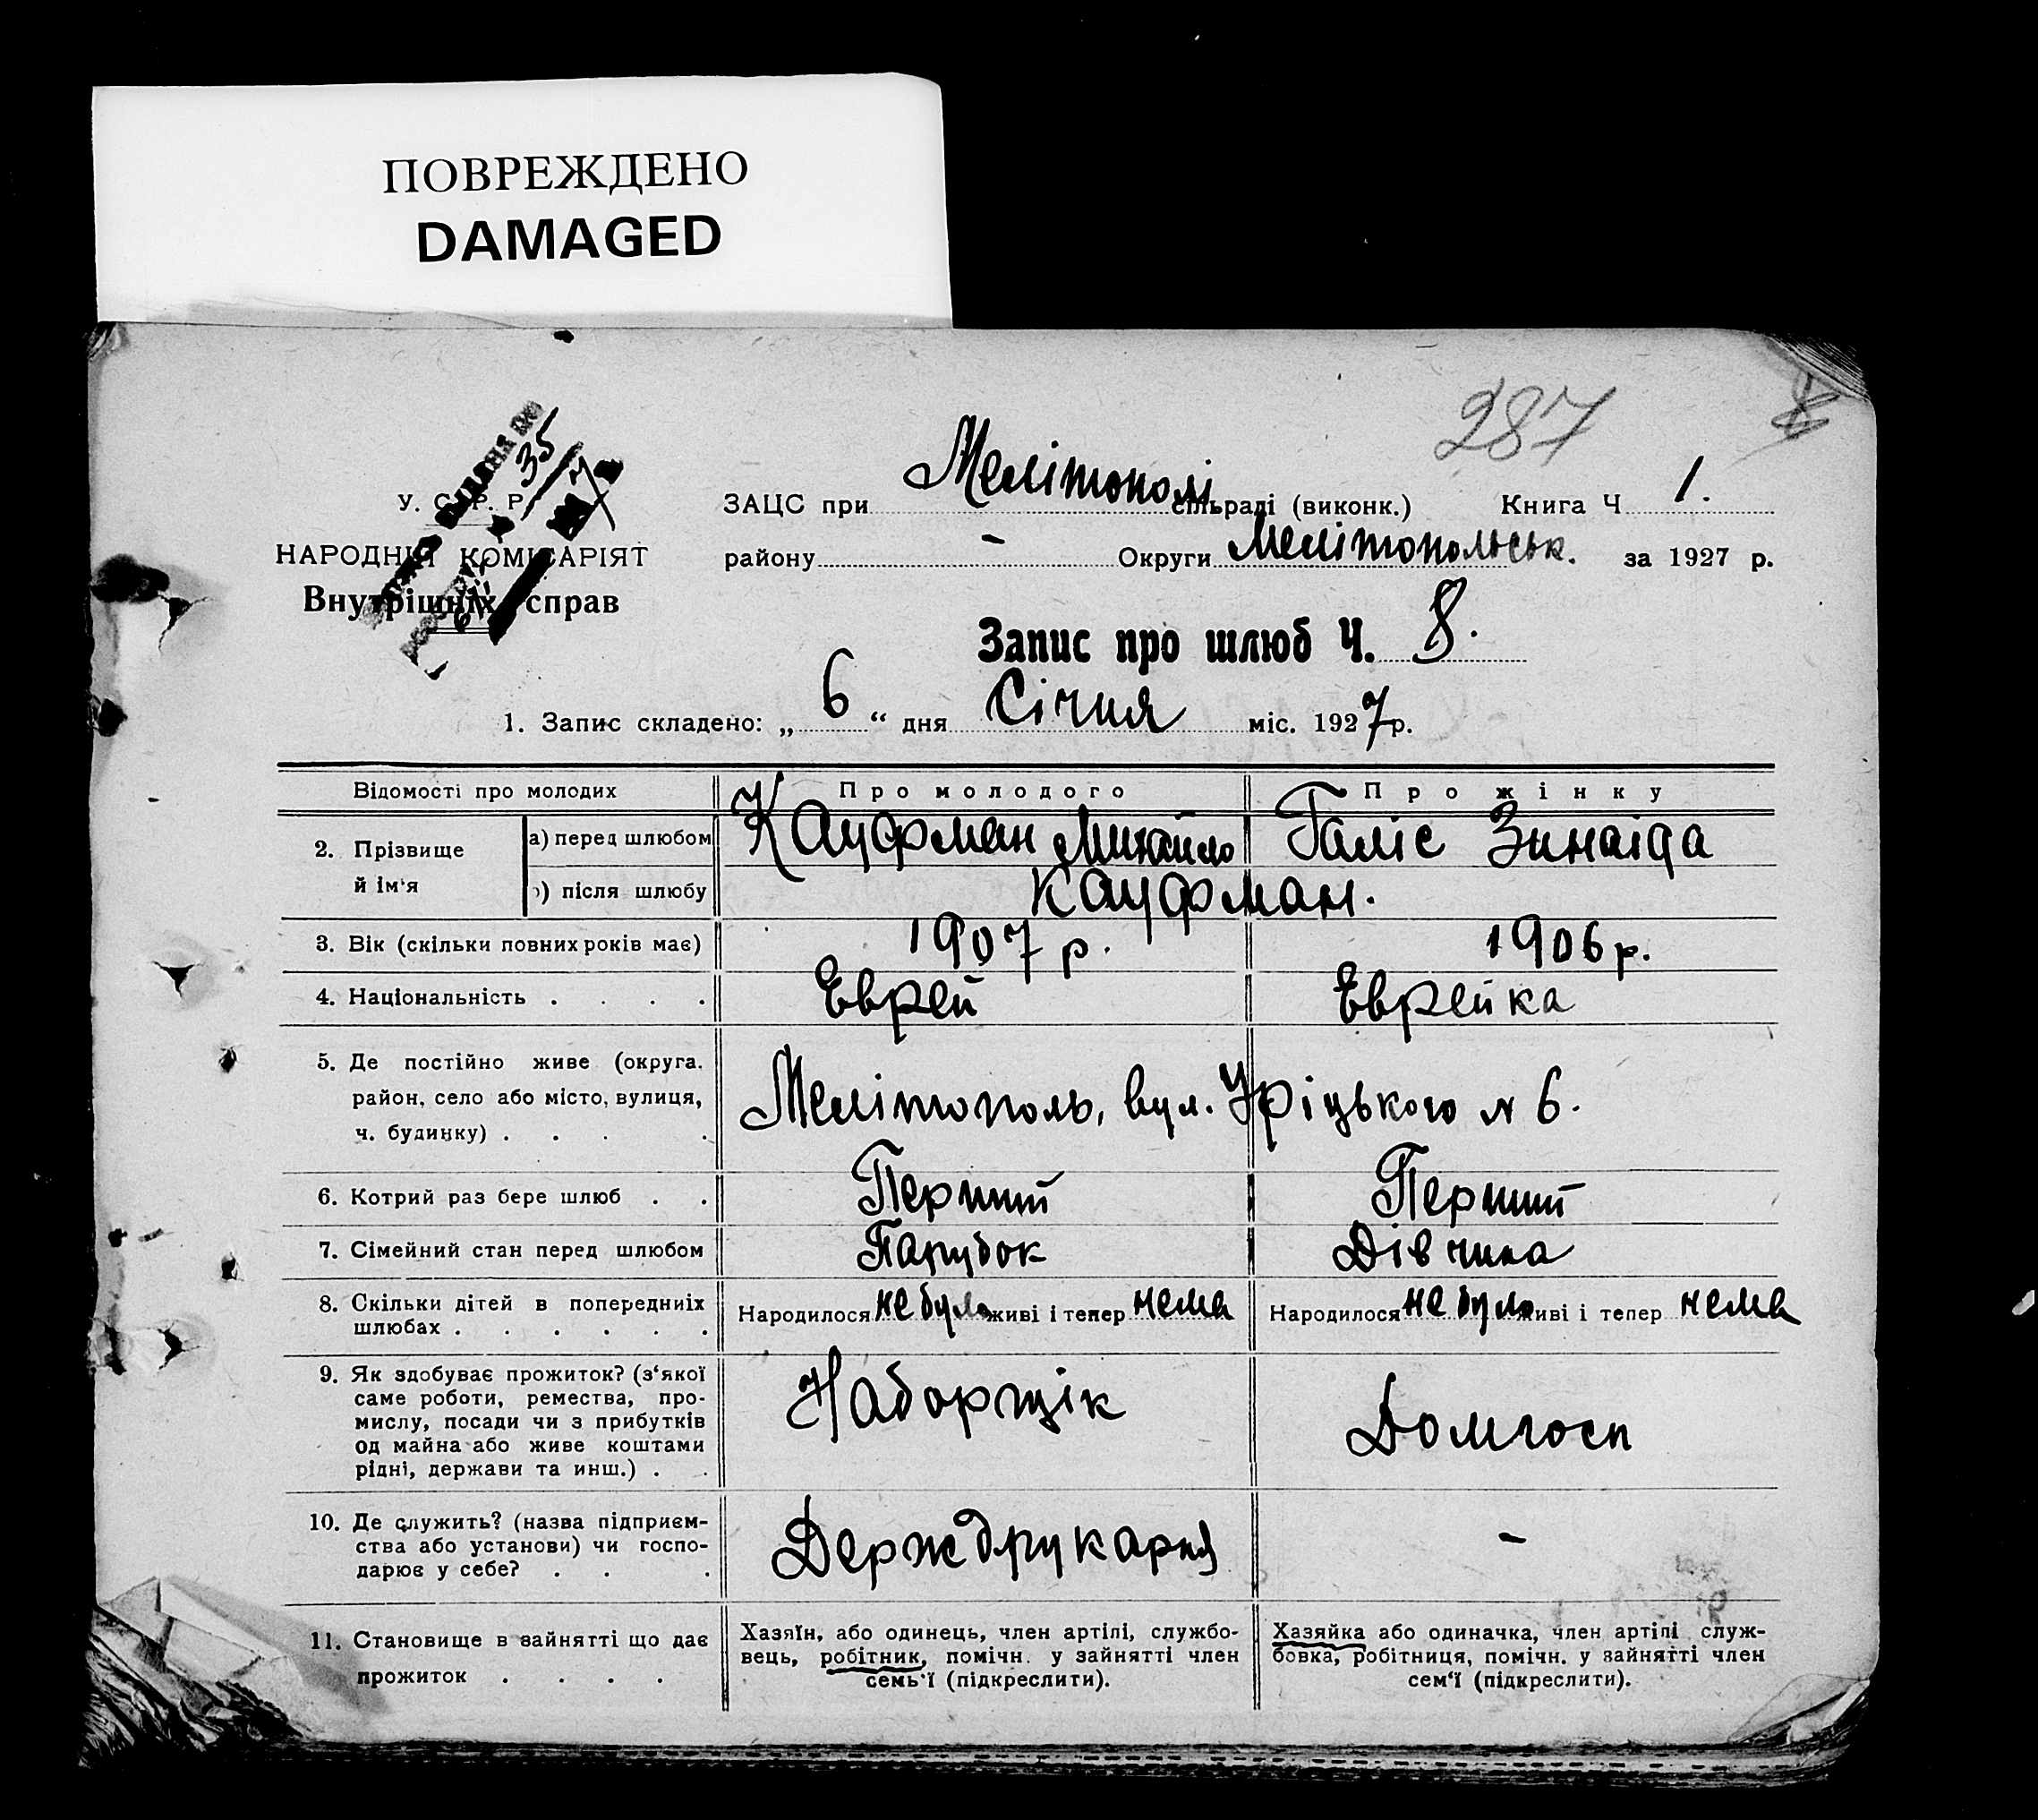 ПОВРЕЖДЕНО
DAMAGED
287
35
У. С. Р. Р.
ЗАЦС при Мелітополі сільраді (виконк.) Книга Ч 1.
НАРОДНІЙ КОМІСАРІЯТ
району - Округи Мелітопольськ. за 1927 р.
Внутрішніх справ
Запис про шлюб Ч. 8.
1. Запис складено: „ 6 “ дня Січня міс. 1927 р.
Відомості про молодих Про молодого Про жінку
2. Прізвище й ім‘я а) перед шлюбом Кауфман Михайло Галіс Зинаіда
б) після шлюбу Кауфман.
3. Вік (скільки повних років має) 1907 р. 1906 р.
4. Національність . . . . Еврей Еврейка
5. Де постійно живе (округа,
район, село або місто, вулиця,
ч. будинку) . . . . Мелітополь, вул. Уріцького № 6.
6. Котрий раз бере шлюб . . Перший Перший
7. Сімейний стан перед шлюбом Парубок Дівчина
8. Скільки дітей в попередниіх
шлюбах . . . . . . Народилося не було живі і тепер нема Народилося не було живі і тепер нема
9. Як здобуває прожиток? (з‘якої
саме роботи, ремества, про-
мислу, посади чи з прибутків
од майна або живе коштами
рідні, держави та инш.) . . Наборщік Домгосп
10. Де служить? (назва підприєм-
ства або установи) чи госпо-
дарює у себе? . . . Держдрукарня -
11. Становище в зайнятті що дає
прожиток . . . .
Хазяїн, або одинець, член артілі, службо-
вець, робітник, помічн. у зайнятті член
семь‘ї (підкреслити).
Хазяйка або одиначка, член артілі служ-
бовка, робітниця, помічн. у зайнятті член
сем‘ї (підкреслити).